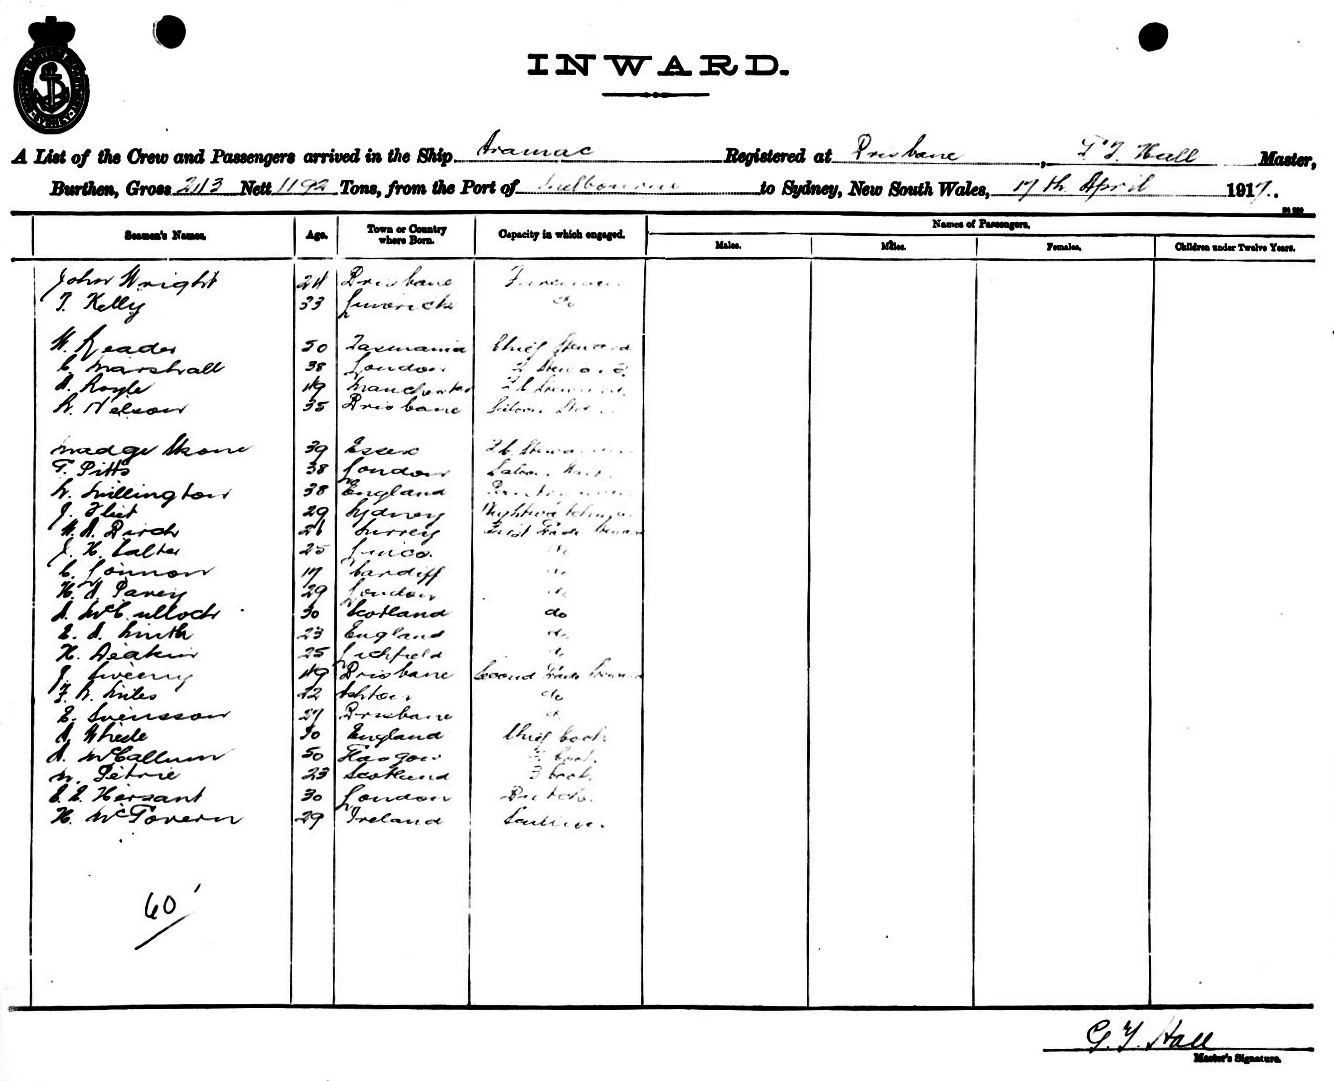 INWARD.
A List of the Crew and Passengers arrived in the Ship Aramac Registered at Brisbane, Hall Master,
Burthen, Gross 2113 Nett 1192 Tons, from the Port of Melbourne to Sydney, New South Wales, 17th April 1917.
Seamen's Names. Age. Town or Country where Born. Capacity in which engaged. Names of Passengers.
Males. Males. Females. Children under Twelve Years.
John Wright 24 Brisbane Fireman
T. Kelly 33 Limerick do
W. Reader 50 Tasmania Chief Steward
C. Marshall 38 London 2 Steward
A. Royle 49 Manchester
W. Nelson 35 Brisbane Saloon
Madge Skone 39 Essex
T. Pitts 38 London Saloon
W. Millington 38 England Pantryman
J. Fleet 29 Sydney Nightwatchman
W. A. Birch 26 Surrey First Grade Steward
J. H. Salter 25 do
C. Lonnon 17 Cardiff do
H. A. Pavey 29 London do
A. McCulloch 30 Scotland do
E. A. Smith 23 England do
H. Deakin 25 Lichfield do
J. Sweeny 49 Brisbane Second Grade Steward
F. W. Miles 22 Ashton do
E. Svensson 27 Brisbane do
A. 30 England Chief Cook
A. McCallum 50 Glasgow 2 Cook.
W. Petrie 23 Scotland 3 Cook.
E. E. Hersant 30 London Butcher.
H. McGovern 29 Ireland Scullion.
60
G. T. Hall
Master's Signature.